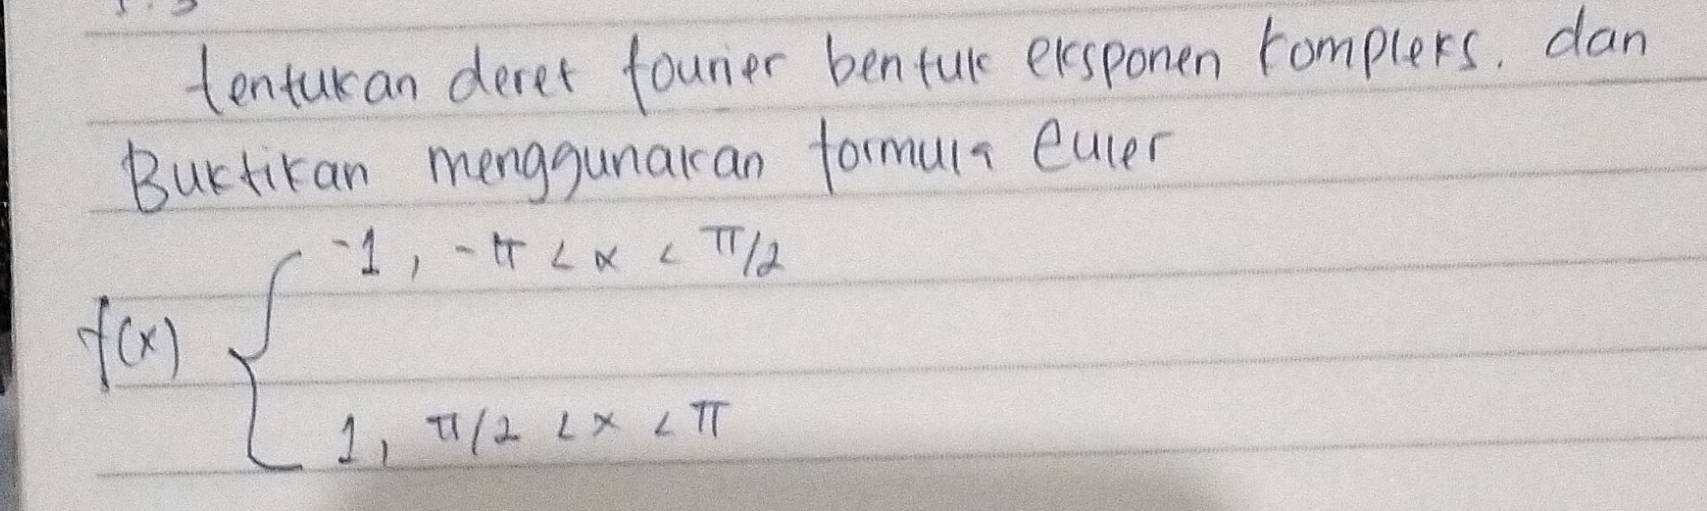 tentukan deret fourier bentuk eksponen kompleks. dan
Buktikan menggunakan formula euler
f(x) { -1, -π < x < π/2
1, π/2 < x < π